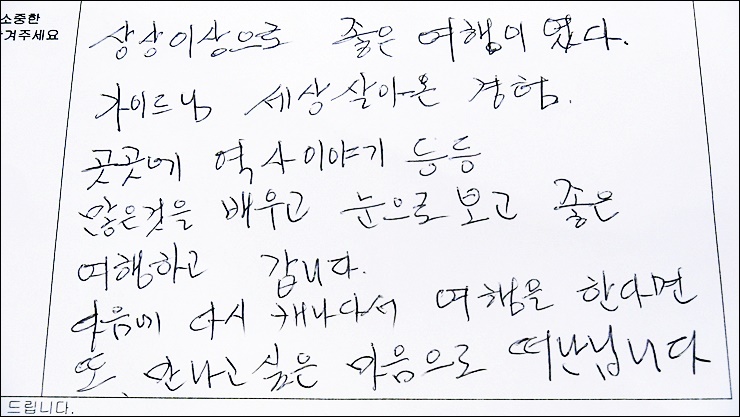 소중한
겨주세요
상상이상으로 좋은 여행이 였다.
가이드님 세상살아온 경험.
곳곳에 역사이야기 등등
많은것을 배우고 눈으로 보고 좋은
여행하고 갑니다.
다음에 다시 캐나다서 여행을 한다면
또, 만나고 싶은 마음으로 떠난닙니다
드립니다.